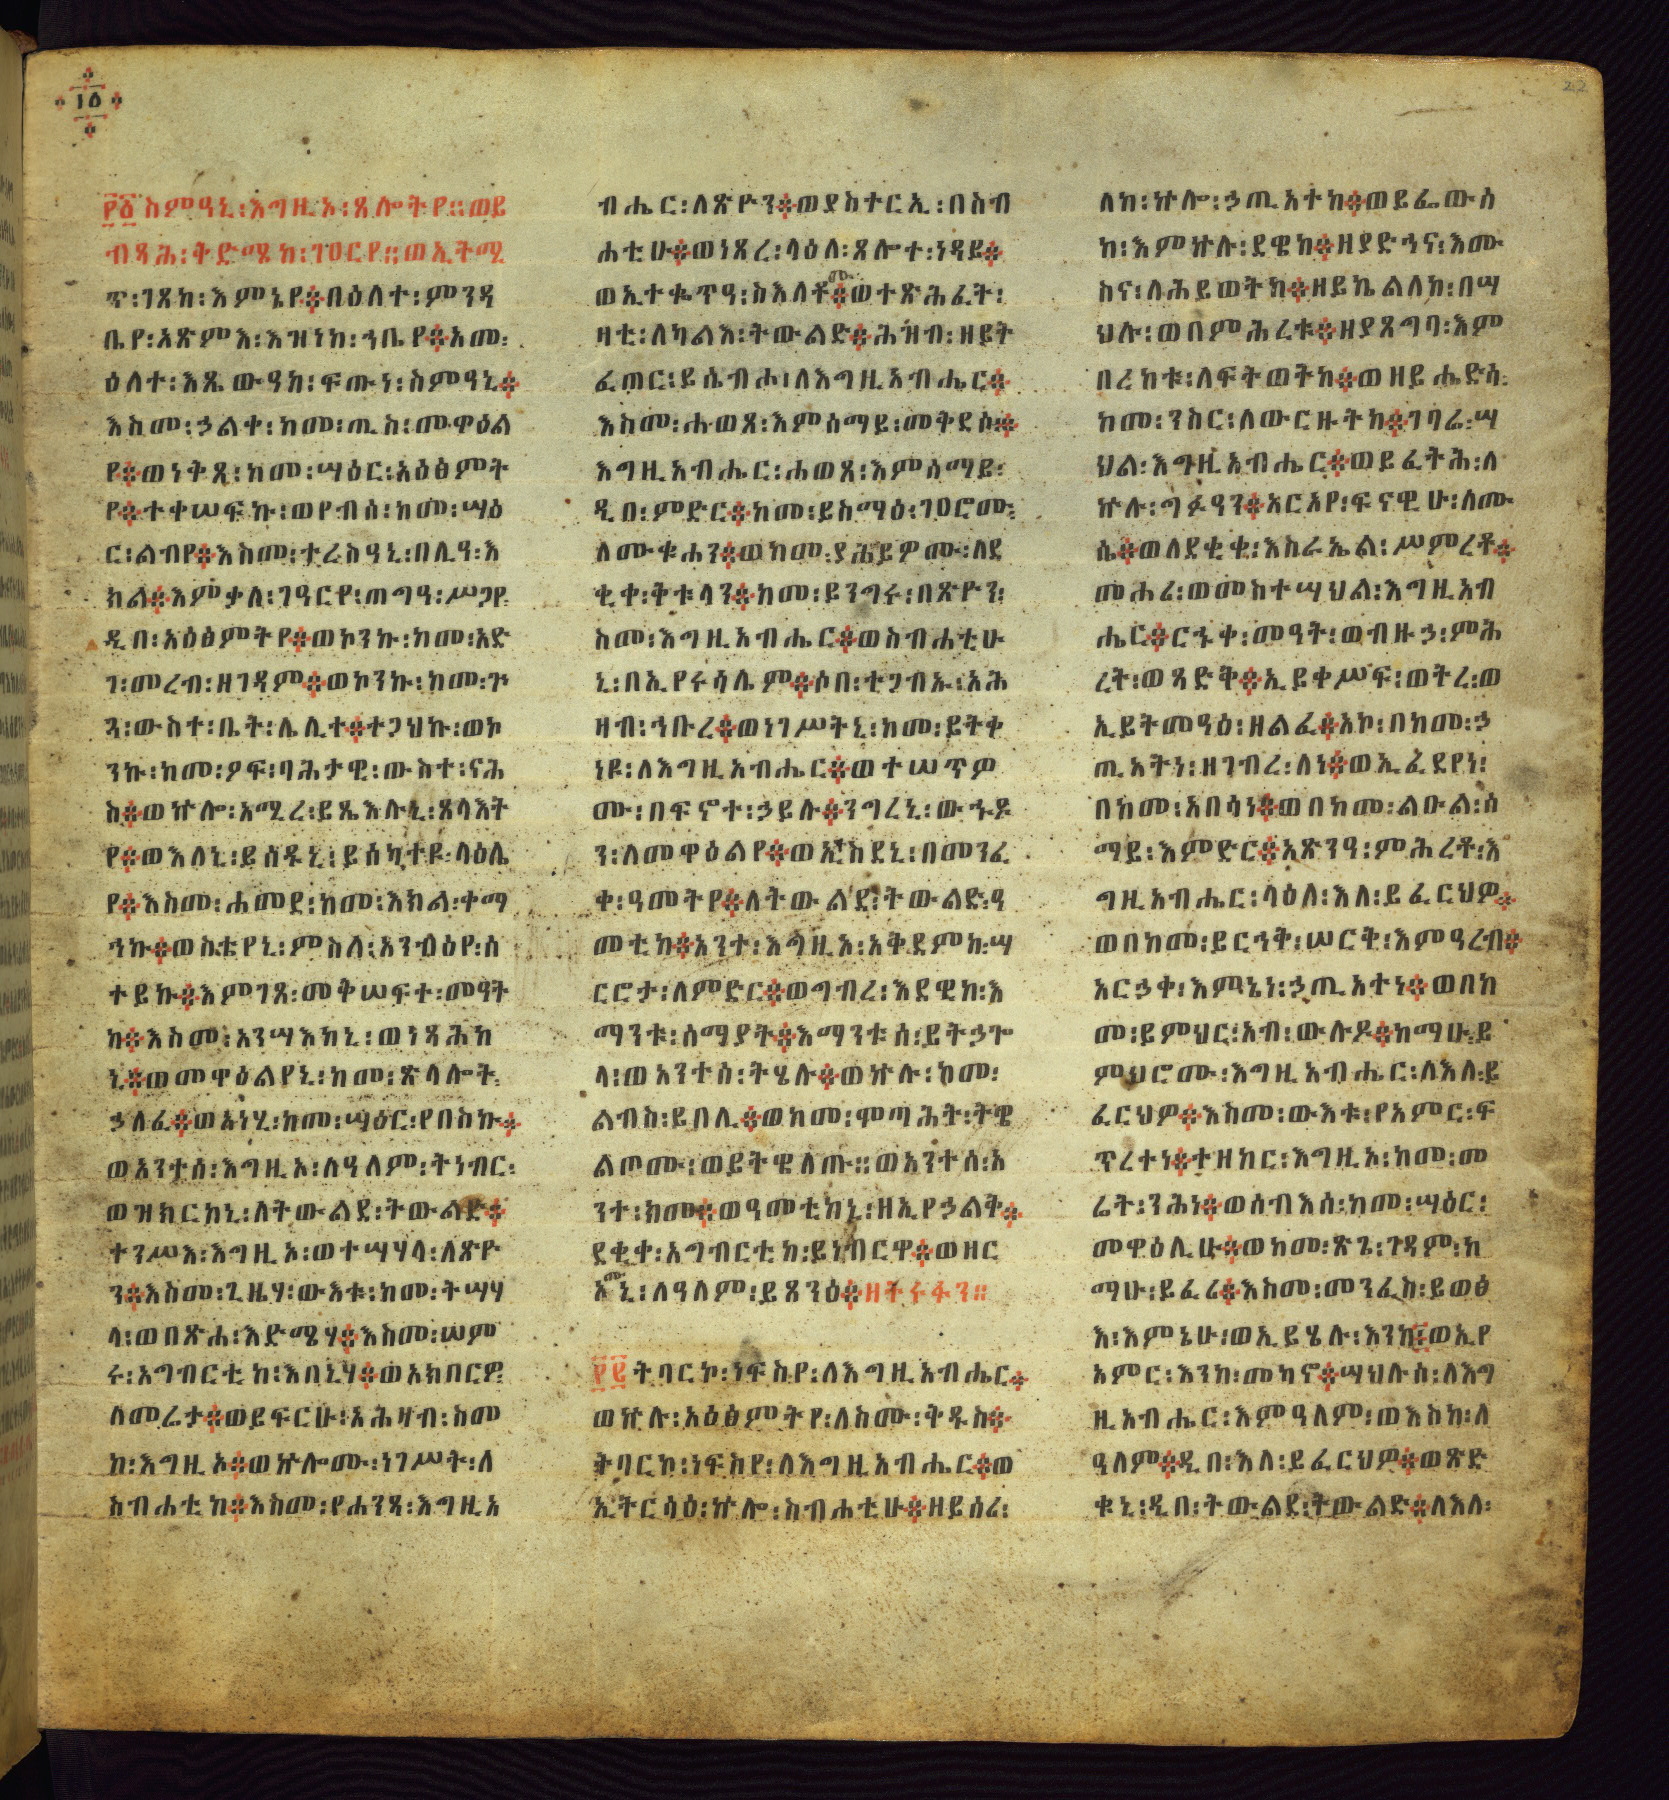 ፲፭
22
፻፩ ስምዓኒ፡እግዚኦ፡ጸሎትየ።ወይ
ብጻሕ፡ቅድሜከ፡ገዐርየ።ወኢትሚ
ጥ፡ገጸከ፡እምኔየ፨በዕለተ፡ምንዳ
ቤየ፡አጽምእ፡እዝነከ፡ኀቤየ፨አመ፡
ዕለተ፡እጼውዓከ፡ፍጡነ፡ስምዓኒ፨
እስመ፡ኃልቀ፡ከመ፡ጢስ፡መዋዕል
የ፨ወነቅጺ፡ከመ፡ሣዕር፡አዕፅምት
የ፨ተቀሠፍኩ፡ወየብሰ፡ከመ፡ሣዕ
ር፡ልብየ፨እስመ፡ተረስዓኒ፡በሊዓ፡እ
ክል፨እምቃለ፡ገዓርየ፡ጠግዓ፡ሥጋየ፡
ዲበ፡አዕፅምትየ፨ወኮንኩ፡ከመ፡አድ
ገ፡መረብ፡ዘገዳም፨ወኮንኩ፡ከመ፡ጉ
ጓ፡ውስተ፡ቤት፡ሌሊተ፨ተጋህኩ፡ወኮ
ንኩ፡ከመ፡ዖፍ፡ባሕታዊ፡ውስተ፡ናሕ
ስ፨ወኵሎ፡አሚረ፡ይጼእሉኒ፡ጸላእት
የ፨ወእለኒ፡ይሰዱኒ፡ይሰካተዩ፡ላዕሌ
የ፨እስመ፡ሐመደ፡ከመ፡እክል፡ቀማ
ኅኩ፨ወስቴየኒ፡ምስለ፡አንብዕየ፡ሰ
ተይኩ፨እምገጸ፡መቅሠፍተ፡መዓት
ከ፨እስመ፡አንሣእከኒ፡ወነጻሕከ
ኒ፨ወመዋዕልየኒ፡ከመ፡ጽላሎት፡
ኃለፈ፨ወአነሂ፡ከመ፡ሣዕር፡የበስኩ፨
ወአንተሰ፡እግዚኦ፡ለዓለም፡ትነብር፡
ወዝክርከኒ፡ለትውልደ፡ትውልድ፨
ተንሥእ፡እግዚኦ፡ወተሣሃላ፡ለጽዮ
ን፨እስመ፡ጊዜሃ፡ውእቱ፡ከመ፡ትሣሃ
ላ፡ወበጽሐ፡እድሜሃ፨እስመ፡ሠም
ሩ፡አግብርቲከ፡እበኒሃ፨ወአክበርዎ፡
ለመሬታ፨ወይፍርሁ፡አሕዛብ፡ስመ
ከ፡እግዚኦ፨ወኵሎሙ፡ነገሥት፡ለ
ስብሐቲከ፨እስመ፡የሐንጻ፡እግዚአ
ብሔር፡ለጽዮን፨ወያስተርኢ፡በስብ
ሐቲሁ፨ወነጸረ፡ላዕለ፡ጸሎተ፡ነዳይ፨
ወኢተቈጥዓ፡ስእለቶሙ፨ወተጽሕፈት፡
ዛቲ፡ለካልእ፡ትውልድ፨ሕዝብ፡ዘይት
ፈጠር፡ይሴብሖ፡ለእግዚአብሔር፨
እስመ፡ሐወጸ፡እምሰማይ፡መቅደሱ፨
እግዚአብሔር፡ሐወጸ፡እምሰማይ፡
ዲበ፡ምድር፨ከመ፡ይስማዕ፡ገዐሮሙ፡
ለሙቁሐን፨ወከመ፡ያሕይዎሙ፡ለደ
ቂቀ፡ቅቱላን፨ከመ፡ይንግሩ፡በጽዮን፡
ስመ፡እግዚአብሔር፨ወስብሐቲሁ
ኒ፡በኢየሩሳሌም፨ሶበ፡ተጋብኡ፡አሕ
ዛብ፡ኅቡረ፨ወነገሥትኒ፡ከመ፡ይትቀ
ነዩ፡ለእግዚአብሔር፨ወተሠጥዎ
ሙ፡በፍኖተ፡ኃይሉ፨ንግረኒ፡ውኁዶ
ን፡ለመዋዕልየ፨ወኢትስደኒ፡በመንፈ
ቀ፡ዓመትየ፨ለትውልደ፡ትውልድ፡ዓ
መቲከ፨አንተ፡እግዚኦ፡አቅደምከ፡ሣ
ርሮታ፡ለምድር፨ወግብረ፡እደዊከ፡እ
ማንቱ፡ሰማያት፨እማንቱሰ፡ይትኃጐ
ላ፡ወአንተሰ፡ትሄሉ፨ወኵሉ፡ከመ፡
ልብስ፡ይበሊ፨ወከመ፡ሞጣሕት፡ትዌ
ልጦሙ፡ወይትዌለጡ።ወአንተሰ፡አ
ንተ፡ክመ፨ወዓመቲከኒ፡ዘኢየኃልቅ፨
ደቂቀ፡አግብርቲከ፡ይነብርዋ፨ወዘር
ኦሙኒ፡ለዓለም፡ይጸንዕ፨ዘትሩፋን።
፻፪ ትባርኮ፡ነፍስየ፡ለእግዚአብሔር፨
ወኵሉ፡አዕፅምትየ፡ለስሙ፡ቅዱስ፨
ትባርኮ፡ነፍስየ፡ለእግዚአብሔር፨ወ
ኢትርሳዕ፡ኵሎ፡ስብሐቲሁ፨ዘይሰሪ፡
ለከ፡ኵሎ፡ኃጢአተከ፨ወይፌውሰ
ከ፡እምኵሉ፡ደዌከ፨ዘያድኅና፡እሙ
ስና፡ለሕይወትከ፨ዘይኬልለከ፡በሣ
ህሉ፡ወበምሕረቱ፨ዘያጸግባ፡እም
በረከቱ፡ለፍትወትከ፨ወዘይሔድሳ፡
ከመ፡ንስር፡ለውርዙትከ፨ገባሬ፡ሣ
ህል፡እግዚአብሔር፨ወይፈትሕ፡ለ
ኵሉ፡ግፉዓን፨አርአየ፡ፍናዊሁ፡ለሙ
ሴ፨ወለደቂቂ፡እስራኤል፡ሥምረቶ፨
መሐሪ፡ወመስተሣህል፡እግዚአብ
ሔር፨ርኁቀ፡መዓት፡ወብዙኃ፡ምሕ
ረት፡ወጻድቅ፨ኢይቀሥፍ፡ወትረ፡ወ
ኢይትመዓዕ፡ዘልፈ፨አኮ፡በከመ፡ኃ
ጢአትነ፡ዘገብረ፡ለነ፨ወኢፈደየነ፡
በከመ፡አበሳነ፨ወበከመ፡ልዑል፡ሰ
ማይ፡እምድር፨አጽንዓ፡ምሕረቶ፡እ
ግዚአብሔር፡ላዕለ፡እለ፡ይፈርህዎ፨
ወበከመ፡ይርኅቅ፡ሠርቅ፡እምዓረብ፨
አርኃቀ፡እምኔነ፡ኃጢአተነ፨ወበከ
መ፡ይምህር፡አብ፡ውሉዶ፨ከማሁ፡ይ
ምህሮሙ፡እግዚአብሔር፡ለእለ፡ይ
ፈርህዎ፨እስመ፡ውእቱ፡የአምር፡ፍ
ጥረተነ፨ተዘከር፡እግዚኦ፡ከመ፡መ
ሬት፡ንሕነ፨ወሰብእሰ፡ከመ፡ሣዕር፡
መዋዕሊሁ፨ወከመ፡ጽጌ፡ገዳም፡ከ
ማሁ፡ይፈሪ፨እስመ፡መንፈስ፡ይወፅ
እ፡እምኔሁ፡ወኢይሄሉ፡እንከ፨ወኢየ
አምር፡እንከ፡መካኖ፨ሣህሉሰ፡ለእግ
ዚአብሔር፡እምዓለም፡ወእስከ፡ለ
ዓለም፨ዲበ፡እለ፡ይፈርህዎ፨ወጽድ
ቁኒ፡ዲበ፡ትውልደ፡ትውልድ፨ለእለ፡